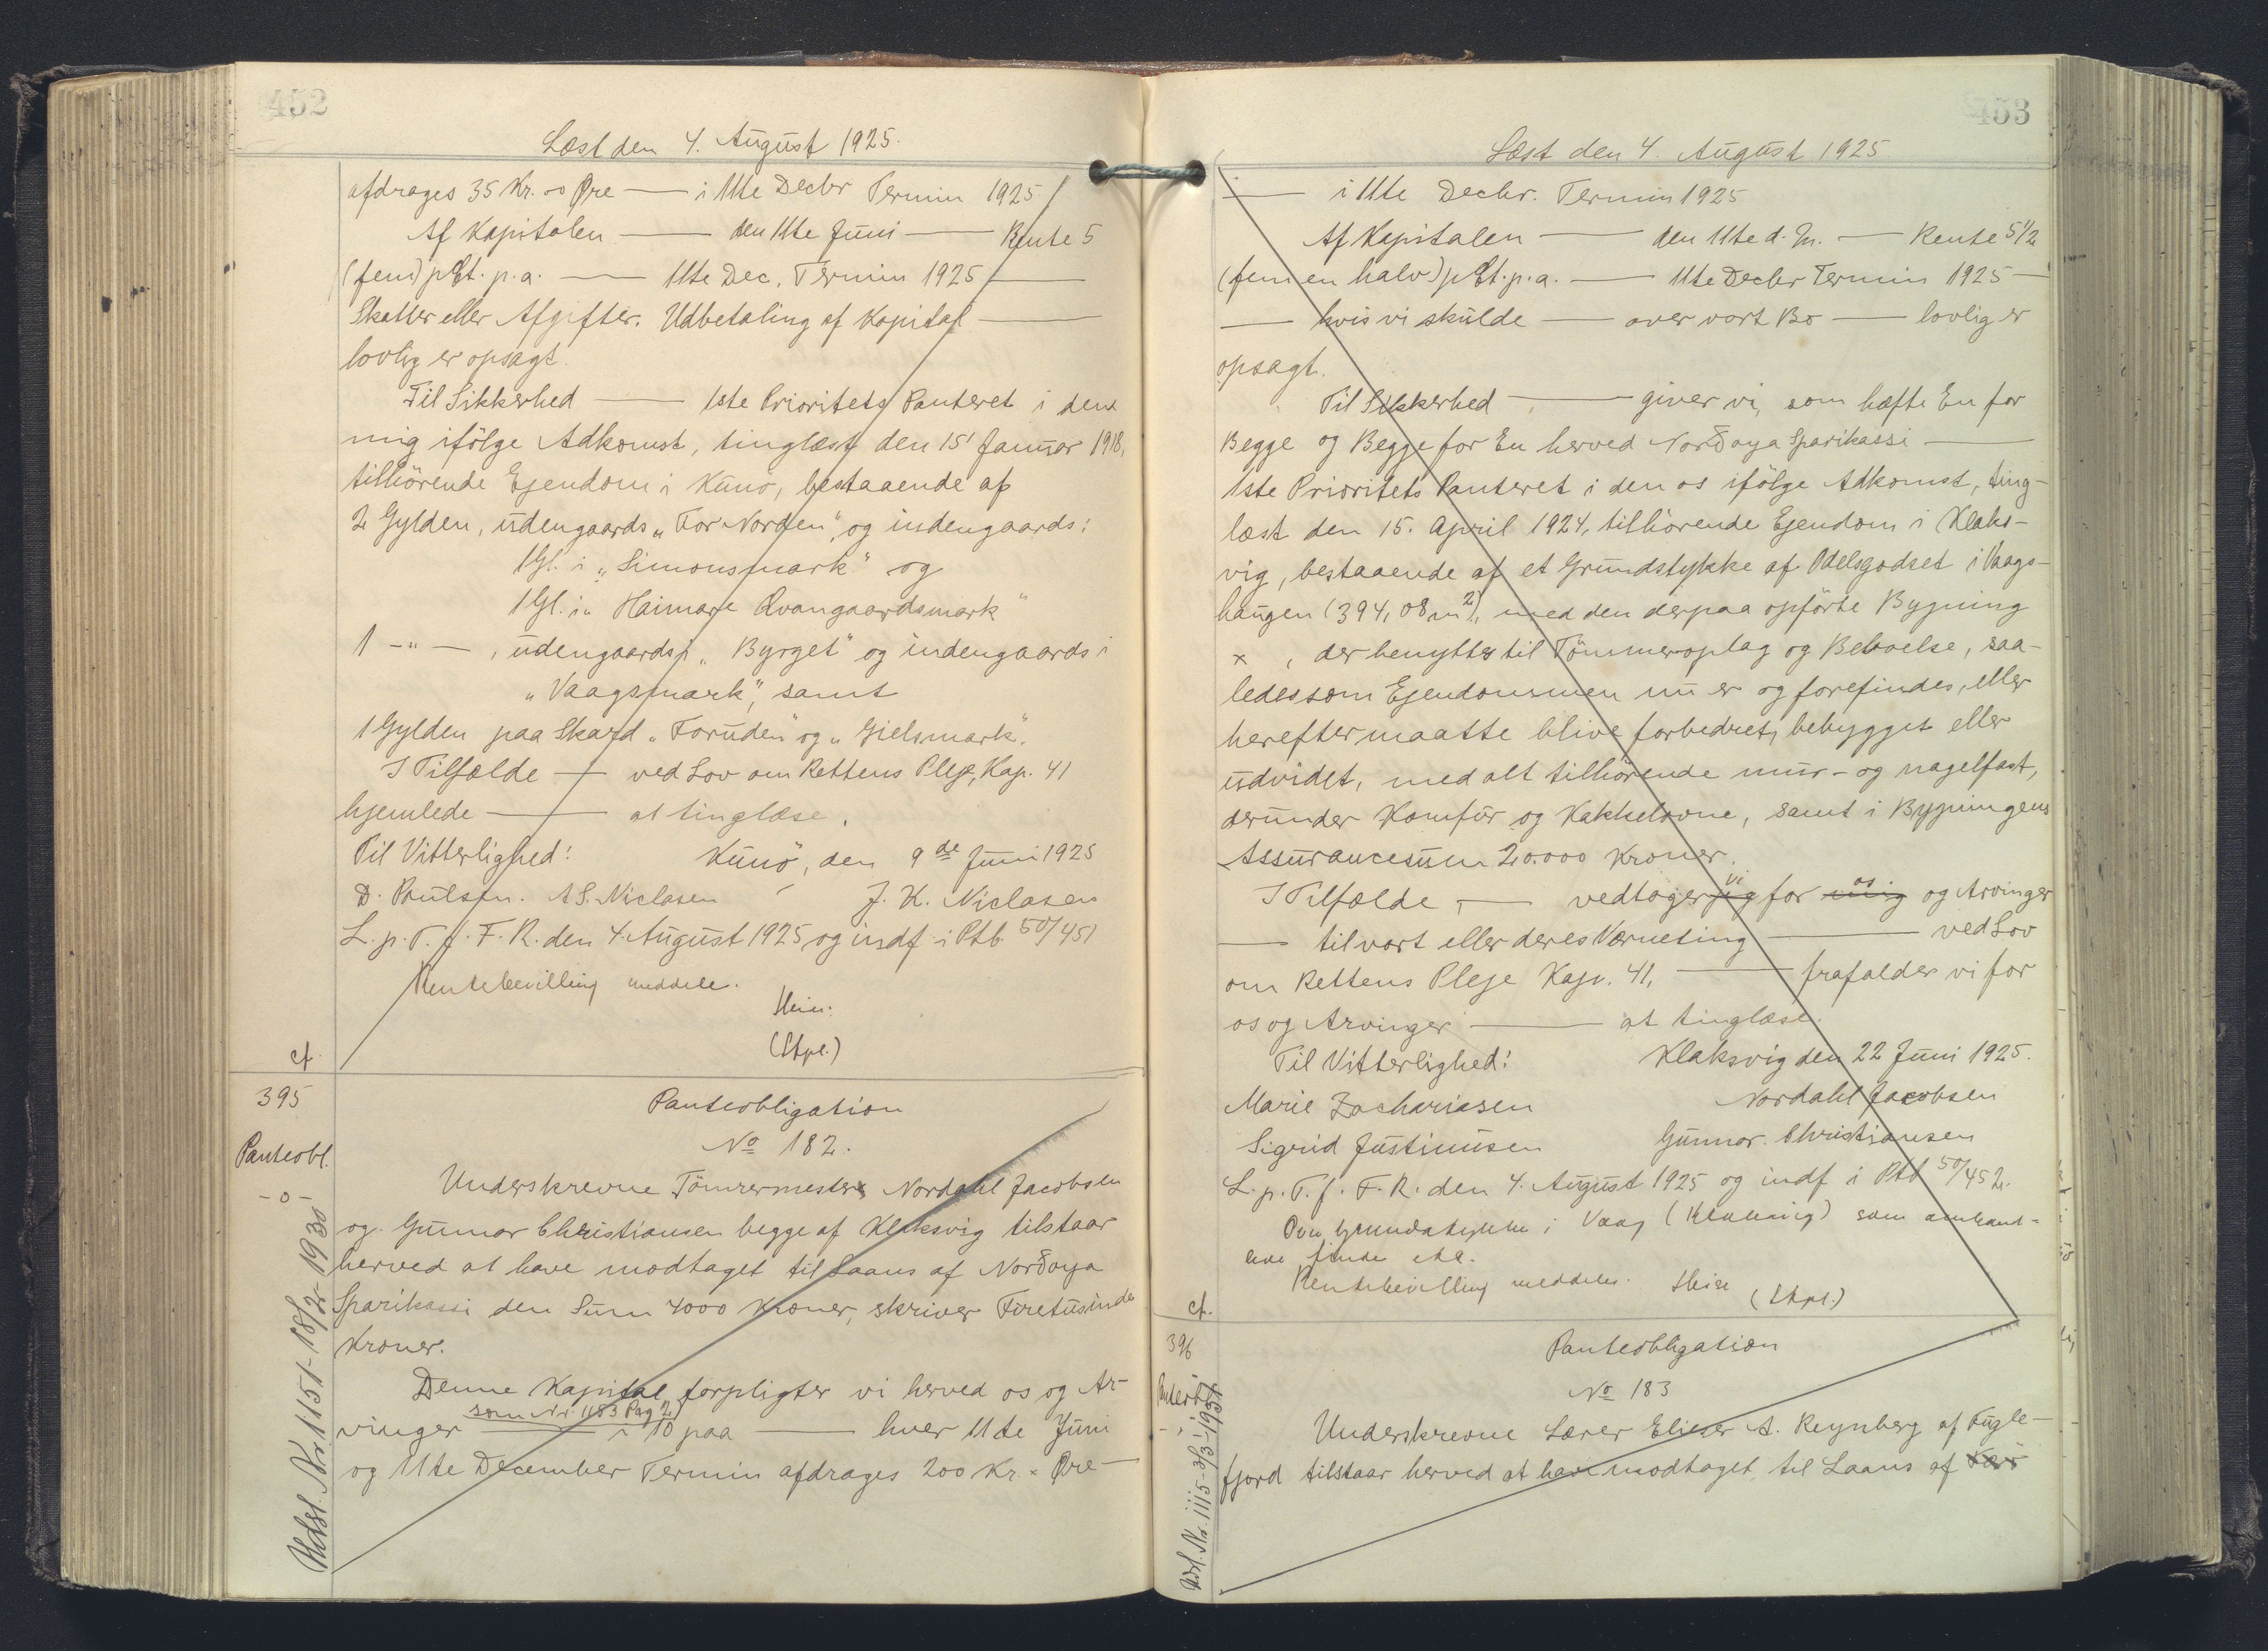 452
Læst den 4. August 1925.
afdrages 35 Kr. -o Øre — i 11te Decbr Termin 1925
Af Kapitalen — den 11te Juni — Rente 5
(fem) pCt. p.a. — 11te Dec. Termin 1925 —
Skatter eller Afgifter. Udbetaling af Kapital —
lovlig er opsagt.
Til Sikkerhed — 1ste Prioritets Panteret i den
mig ifölge Adkomst, tinglæst den 15' Januar 1918,
tilhörende Ejendom i Kunö, bestaaende af
2 Gylden, udengaards „For Norden", og indengaards:
1 Gl. i „Simonsmark" og
1 Gl. i „Haimare Qvangaardsmark"
1 -"- , udengaards i „Byrget" og indengaards i
„Vaagsmark", samt
1 Gylden paa Skard „Foruden" og „Gielsmark".
I Tilfælde — ved Lov om Rettens Pleje, Kap. 41
hjemlede — at tinglæse.
Til Vitterlighed: Kunö, den 9de Juni 1925
D. Poulsen. A.S. Niclasen J. K. Niclasen
L. p. T. f. F. R. den 4. August 1925 og indf. i Ptb. 50/451
Rentebevilling meddelt.
Heise.
(Stpl.)
cf.
395
Panteobl.
-o-
Udsl. Nr. 1151-18/2-1930
Panteobligation
No 182.
Underskrevne Tömrermestere Nordahl Jacobsen
og Gunnar Christiansen begge af Klaksvig tilstaar
herved at have modtaget til Laans af Norðoya
Sparikassi den Sum 4000 Kroner, skriver Firetusinde
Kroner.
Denne Kapital forpligter vi herved os og Ar-
som Nr. 1183 Pag 2
vinger — 10 paa — hver 11te Juni
og 11te December Termin afdrages 200 Kr. - Øre —
453
Læst den 4. August 1925
— i 11te Decbr. Termin 1925
Af Kapitalen — den 11te d. M. — Rente 5 1/2
(fem en halv) pCt. p.a. — 11te Decbr Termin 1925 —
— hvis vi skulde — over vort Bo — lovlig er
opsagt.
Til Sikkerhed — giver vi, som hæfte En for
Begge og Begge for En herved Norðoya Sparikassi —
1ste Prioritets Panteret i den os ifölge Adkomst, ting-
læst den 15. April 1924, tilhörende Ejendom i Klaks-
vig, bestaaende af et Grundstykke af Odelsgodset i Vaags-
haugen (394,08 m2), med den derpaa opförte Bygning
x , der benyttes til Tömmeroplag og Beboelse, saa-
ledes som Ejendommen nu er og forefindes, eller
herefter maatte blive forbedret, bebygget eller
udvidet, med alt tilhörende mur- og nagelfast,
derunder Komfur og Kakkelovne, samt i Bygningens
Assurancesum 20.000 Kroner.
I Tilfælde — vedtager jeg vi for mig os og Arvinger
— til vort eller deres Værneting — ved Lov
om Rettens Pleje Kap. 41, — frafalder vi for
os og Arvinger — at tinglæse.
Til Vitterlighed: Klaksvig den 22 Juni 1925.
Marie Zachariasen Nordahl Jacobsen
Sigrid Justinussen Gunnar Christiansen
L. p. T. f. F. R. den 4. August 1925 og indf. i Ptb 50/452.
Grundstykke i Vaag (Klaksvig) som
Rentebevilling meddeles. Heise (Stpl.)
cf.
396
Panteobl.
Udsl. Nr. 1115-3/3-1931
Panteobligation
No 183
Underskrevne Lærer Elieser A. Reynberg af Fugle-
fjord tilstaar herved at have modtaget til Laans af